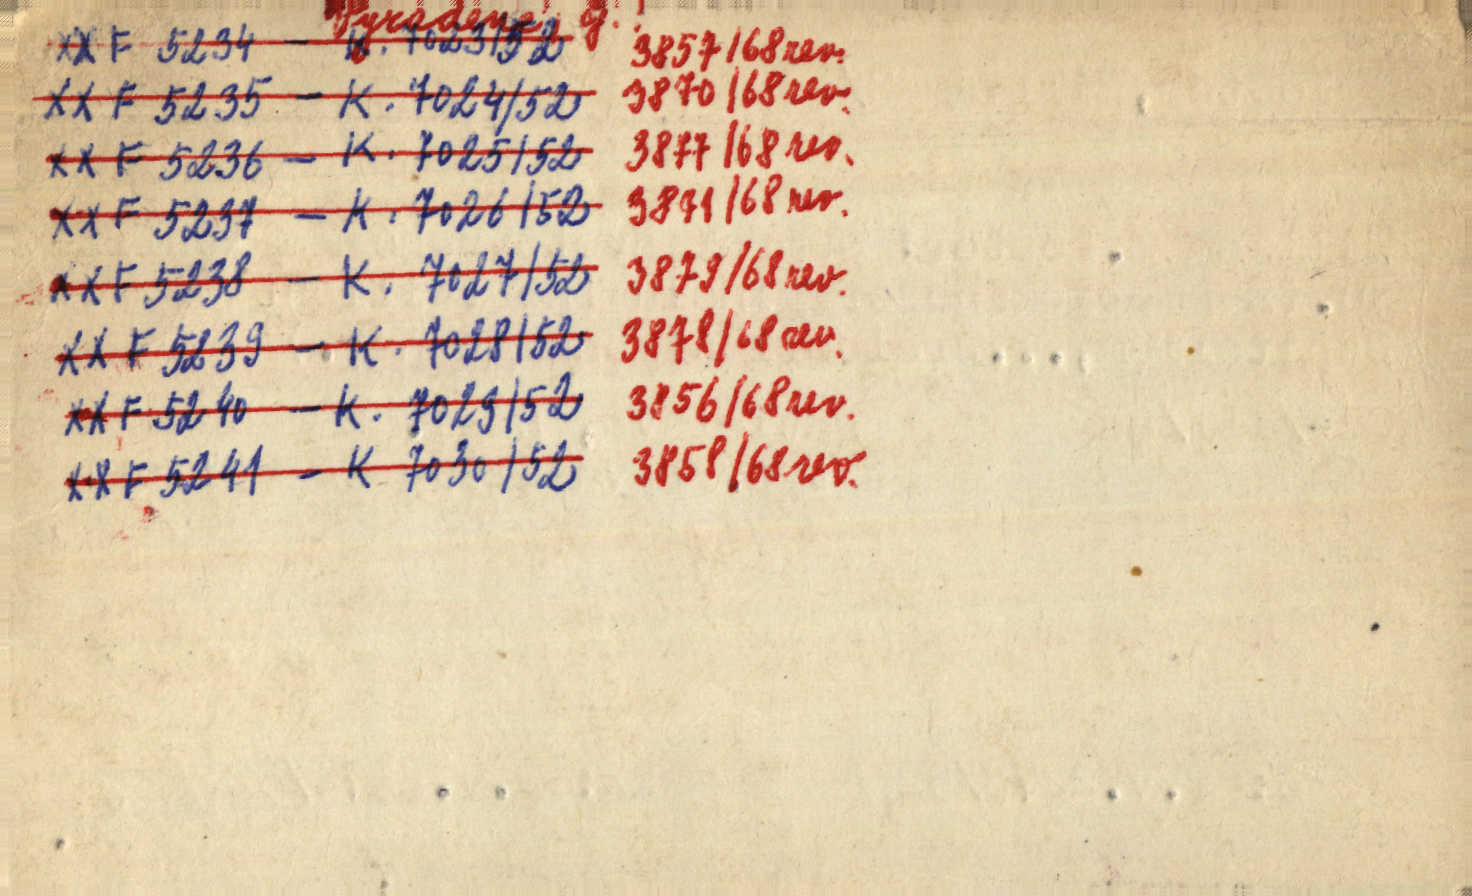 Vyřadeno g.!
XX F 5234 – K. 7023/52 3857/68 rev.
XX F 5235 – K. 7024/52 3870/68 rev.
XX F 5236 – K. 7025/52 3877/68 rev.
XX F 5237 – K. 7026/52 3871/68 rev.
XX F 5238 – K. 7027/52 3879/68 rev.
XX F 5239 – K. 7028/52 3878/68 rev.
XX F 5240 – K. 7029/52 3856/68 rev.
XX F 5241 – K 7030/52 3858/68 rev.